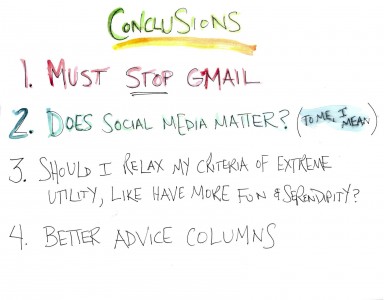 CONCLUSIONS
1. MUST STOP GMAIL
2. DOES SOCIAL MEDIA MATTER? (TO ME, I
MEAN)
3. SHOULD I RELAX MY CRITERIA OF EXTREME
UTILITY, LIKE HAVE MORE FUN & SERENDIPITY?
4. BETTER ADVICE COLUMNS